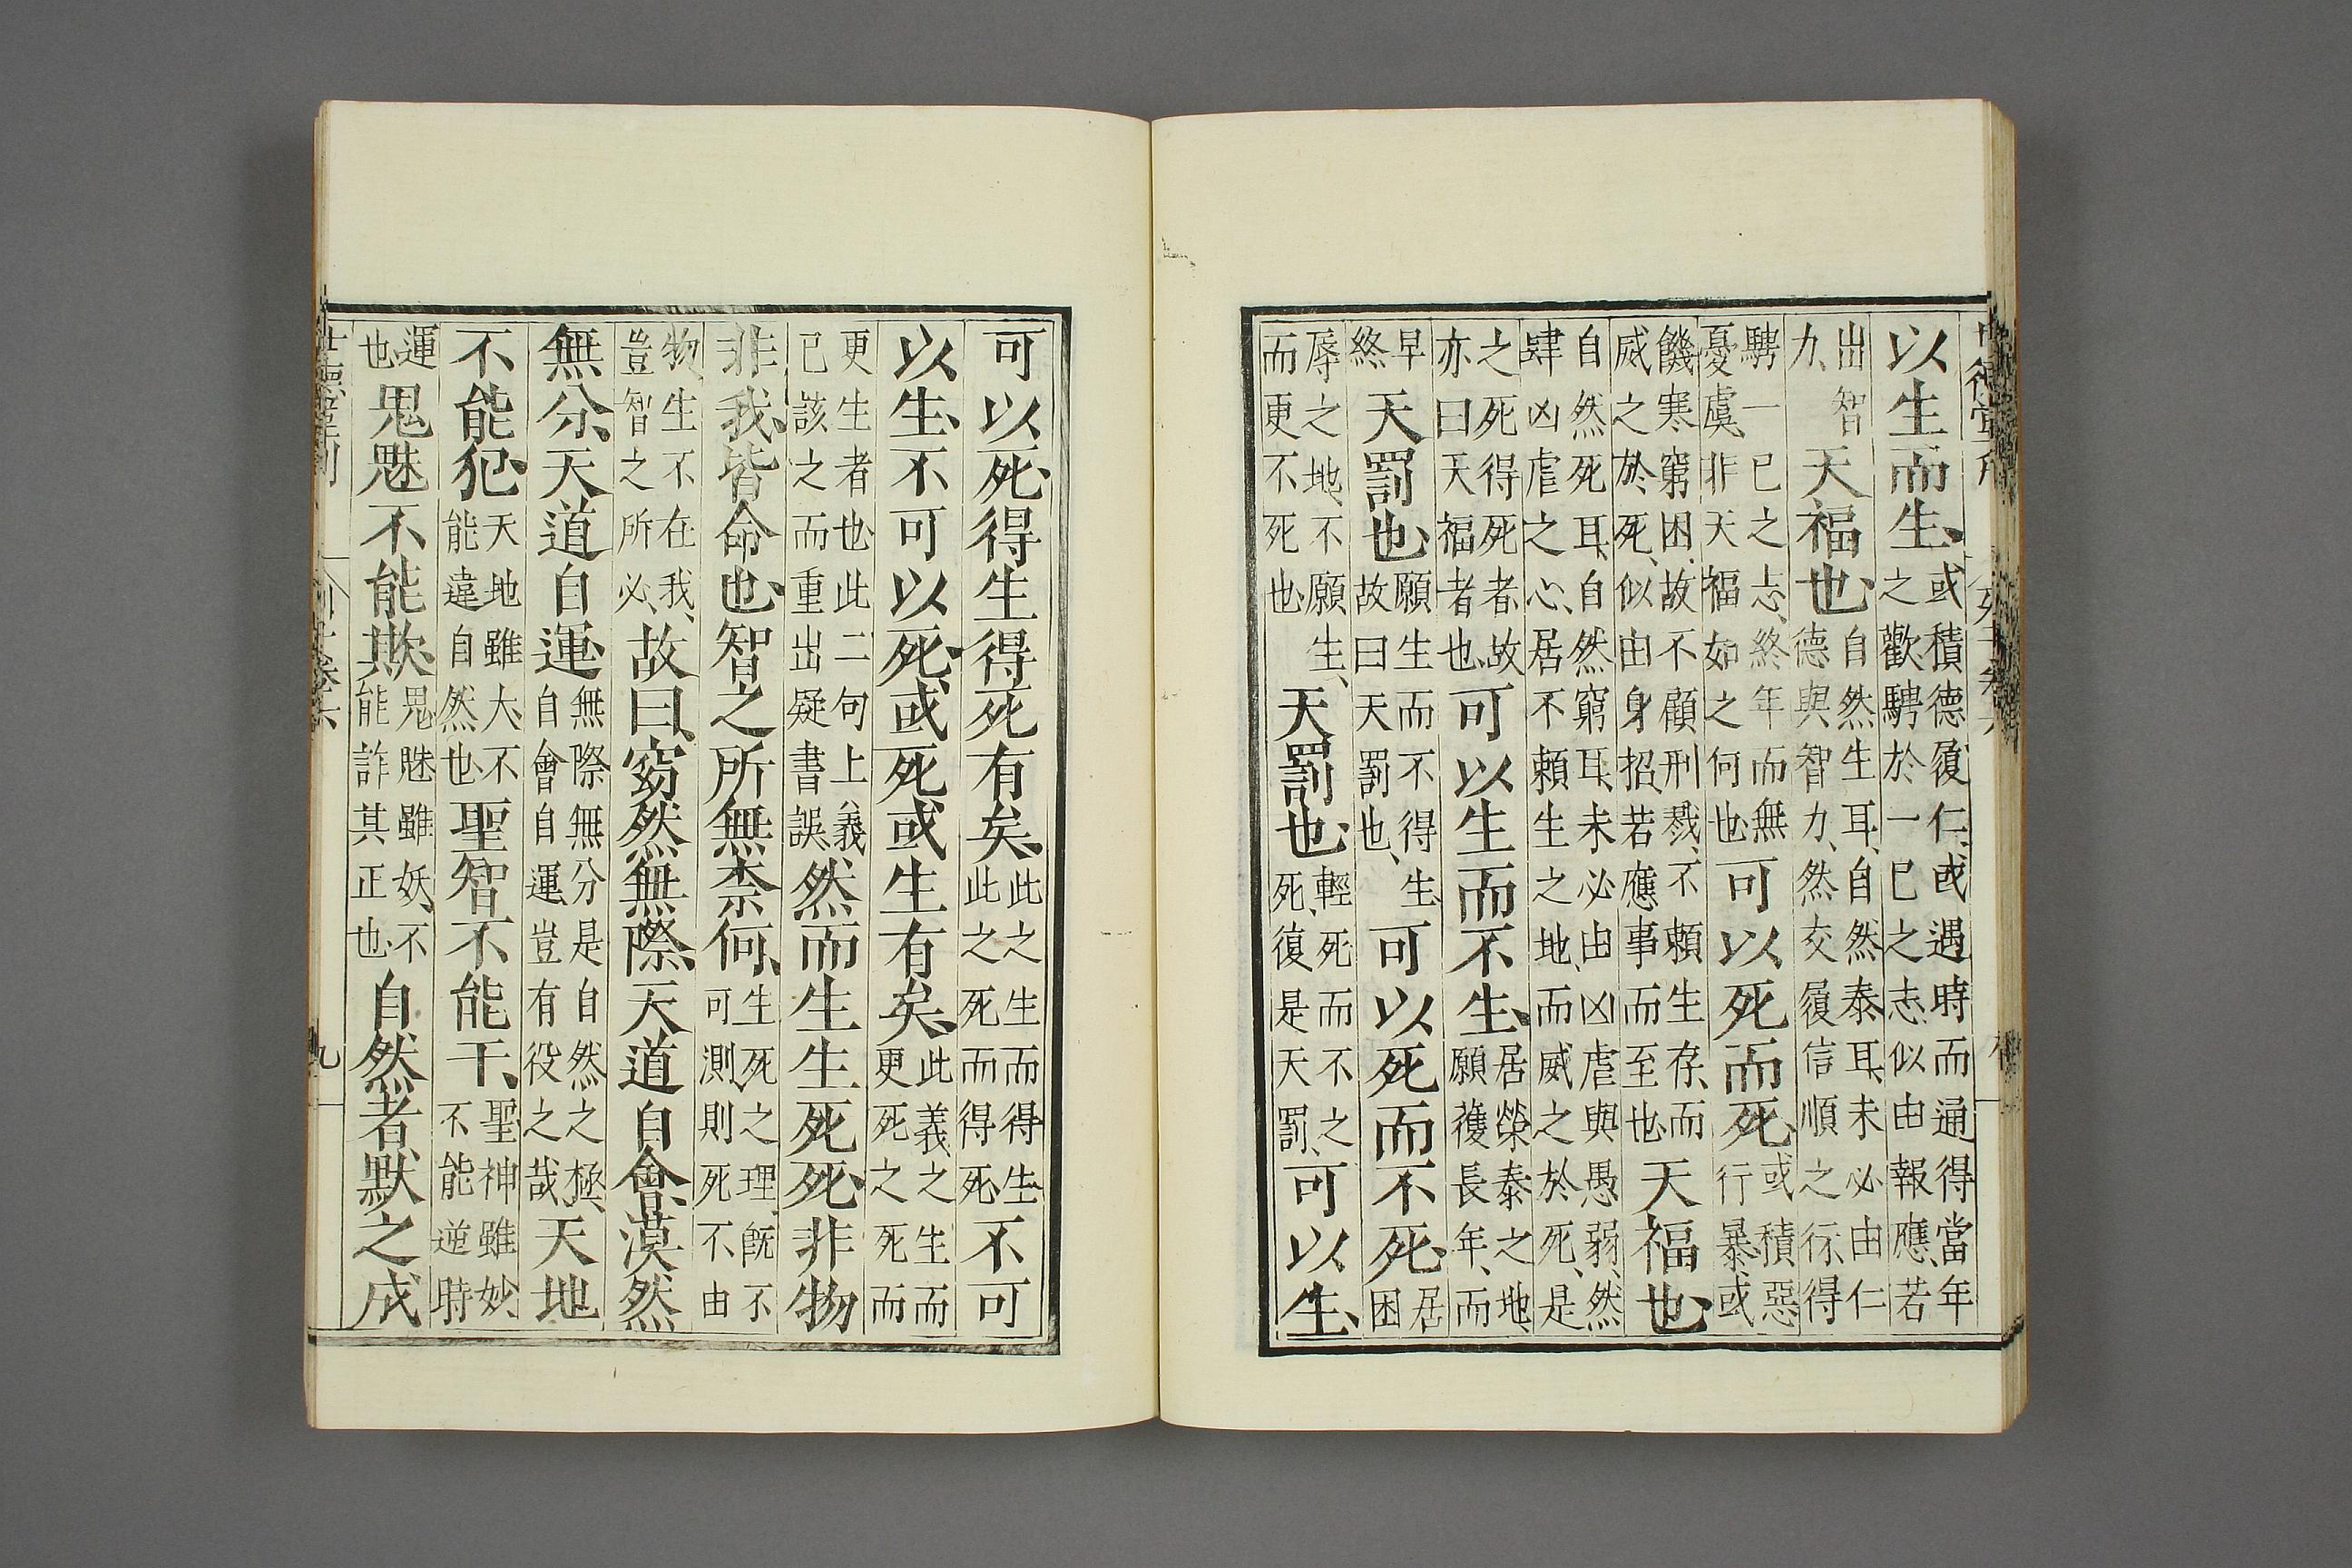 以生而生、或積德履仁、或遇時而通得當年之歡、騁於一已之志、似由報應、若
出智力、天福也、自然生耳、自然泰耳、未必由仁德與智力、然交履信順之行、得
騁一已之志、終年而無憂虞、非天福如之何也、可以死而死、或積惡行暴、或
饑寒窮困、故不顧刑戮、不賴生存、而威之於死、似由身招、若應事而至也、天福也、
自然死耳、自然窮耳、未必由凶虐與愚弱、然肆凶虐之心、居不賴生之地、而威之於死、是
之死得死者、故亦曰天福者也、可以生而不生、居榮泰之地、願獲長年、而
早終天罰也、願生而不得生、故曰天罰也、可以死而不死、居困
辱之地、不願生、而更不死也、天罰也、輕死而不之死、復是天罰、可以生、
可以死、得生得死有矣、此之生而得生、此之死而得死、不可
以生、不可以死、或死或生有矣、此義之生而更死之死而
更生者也此二句上義已該之而重出疑書誤然而生生死死、非物
非我、皆命也、智之所無柰何、生死之理、旣不可測、則死不由
物、生不在我、豈智之所必、故曰、窈然無際、天道自會、漠然
無分、天道自運、無際無分是自然之極、自會自運、豈有役之哉天地
不能犯、天地雖大、不能違自然也、聖智不能干、聖神雖妙、不能逆時
運也、鬼魅不能欺、鬼魅雖妖、不能詐其正也、自然者、默之成
九